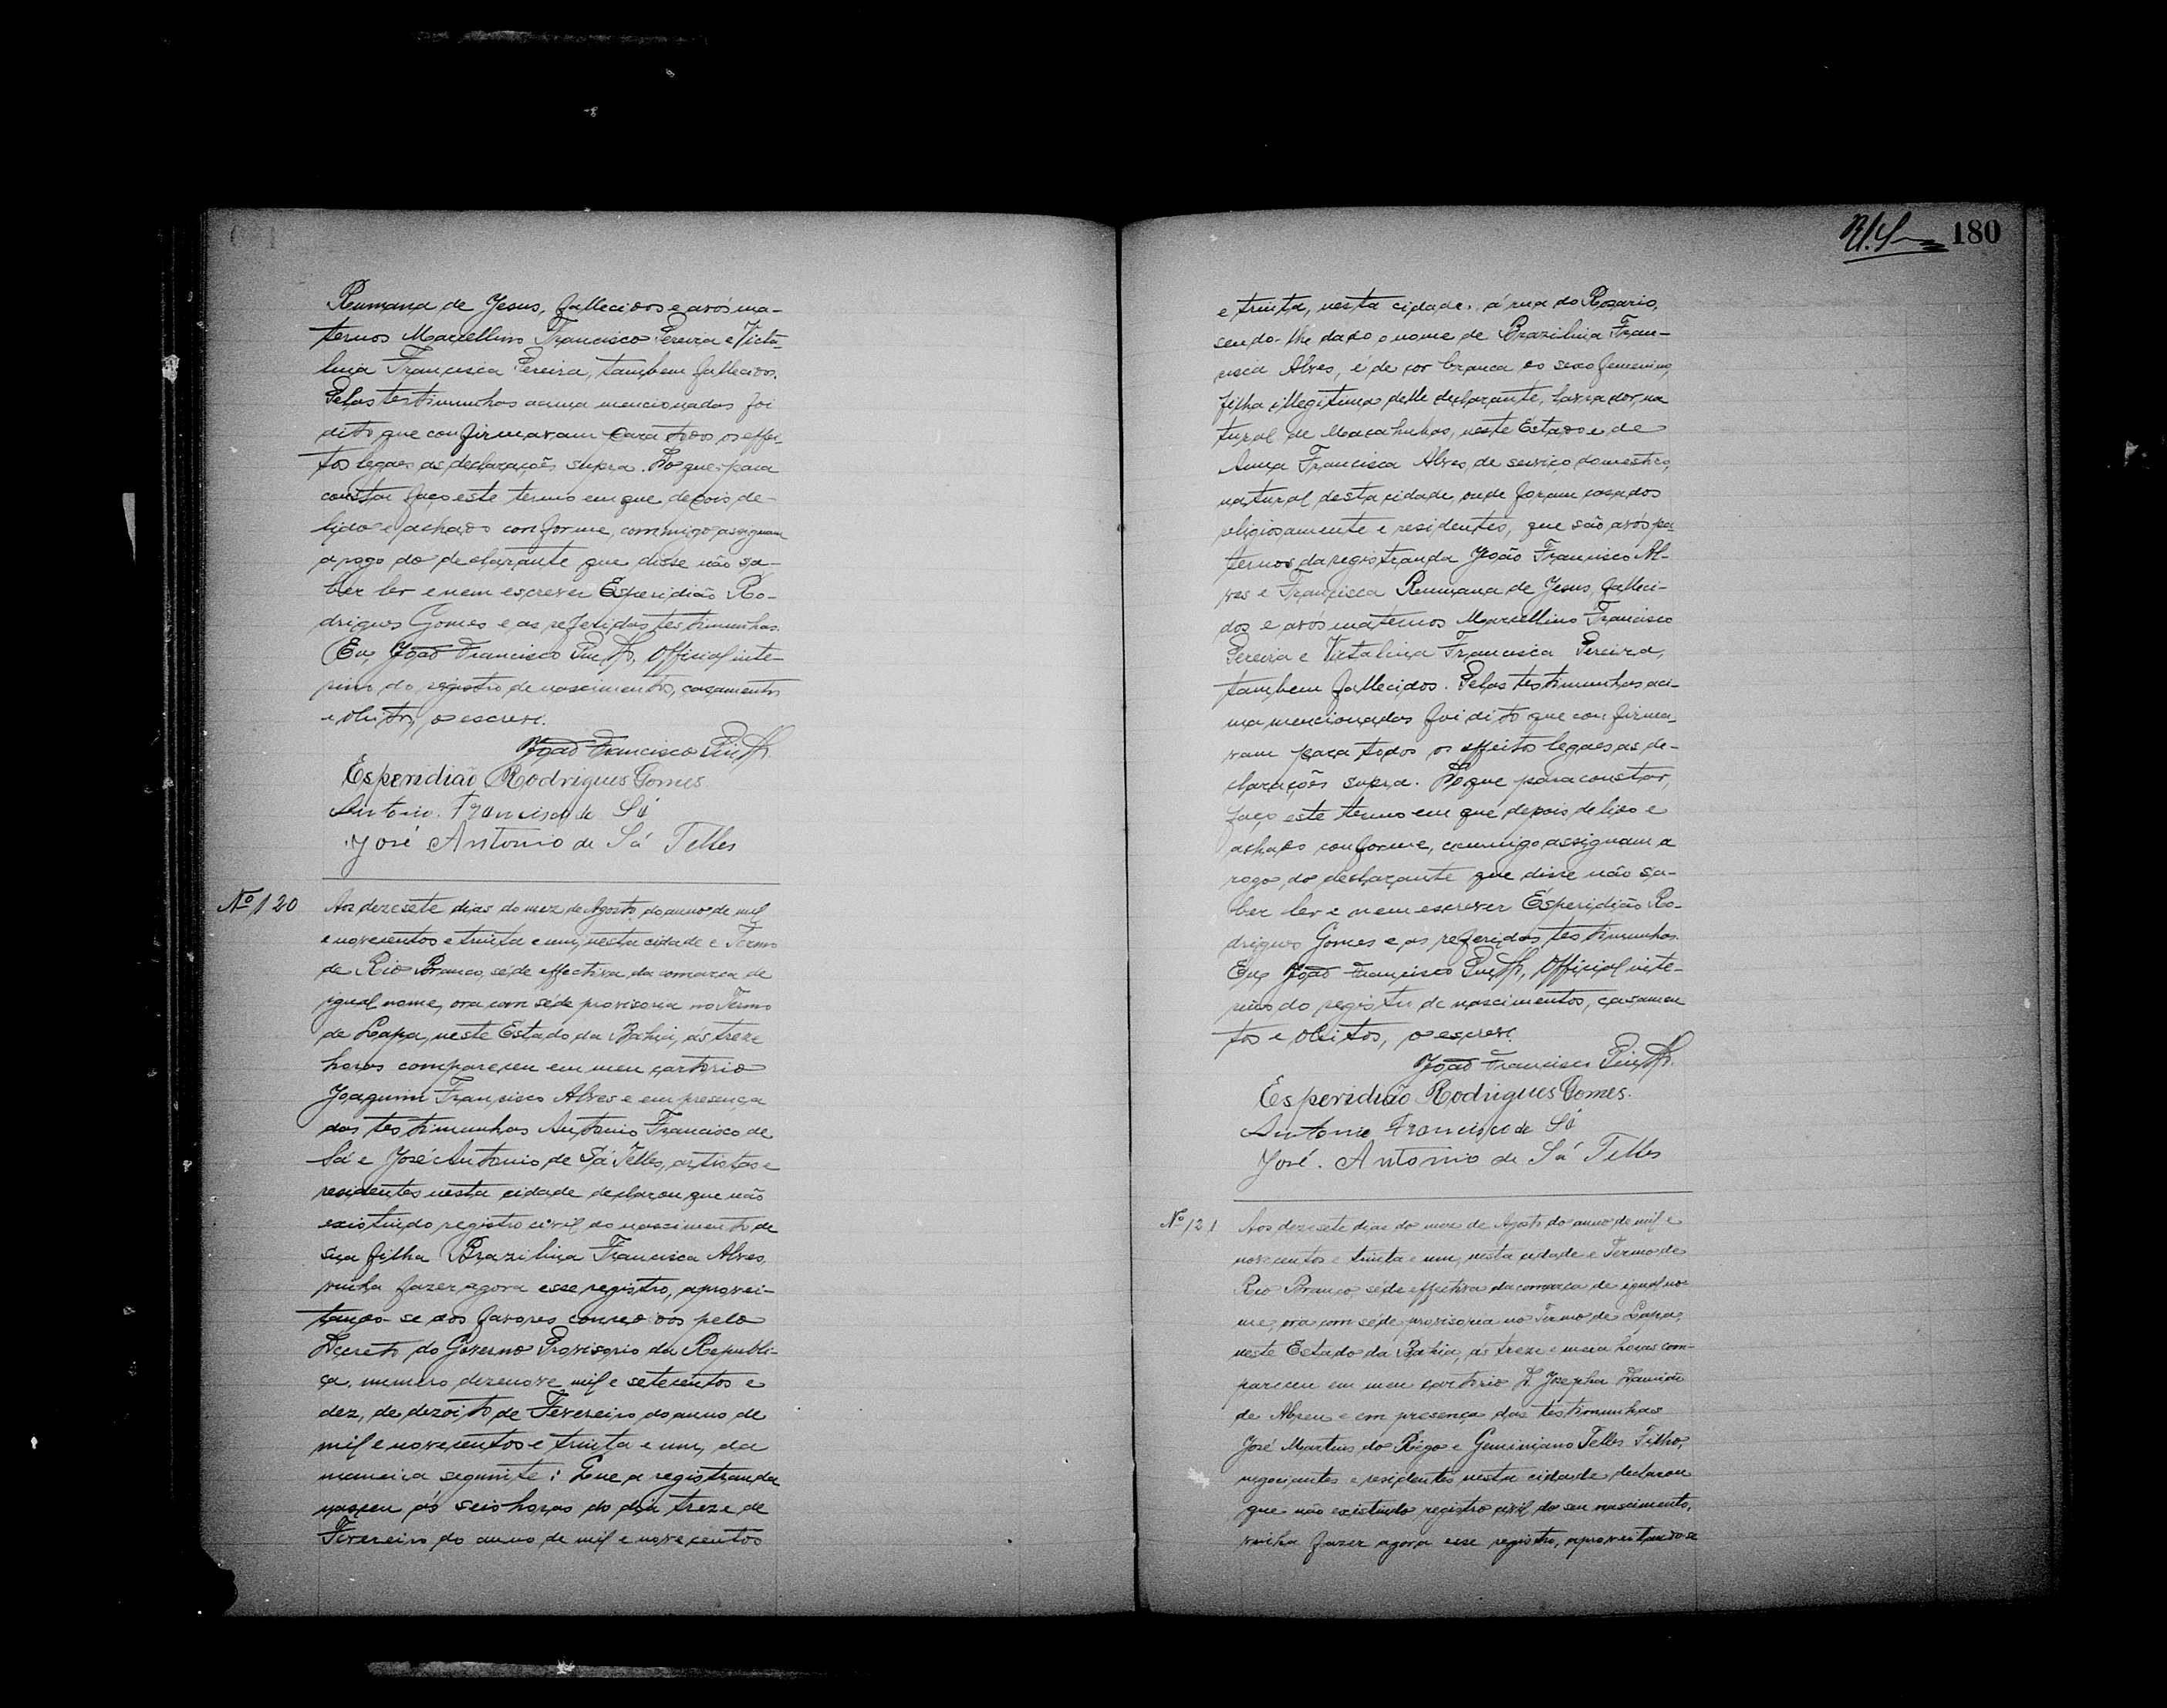 Rumana de Jesus, fallecidos e avós ma-
ternos Marcellino Francisco Pereira e Victa-
lina Francisca Pereira, tambem fallecidos.
Pelas testimunhas acima mencionadas foi
dito que confirmavam para todos os effei-
tos legaes as declarações supra. Do que para
constar faço este termo em que depois de
lido e achado conforme, commigo assignam
a rogo do declarante que disse não sa-
ber ler e nem escrever Esperidião Ro-
drigues Gomes e as referidas testimunhas.
Eu, João Francisco, Official inte-
rino do registro de nascimentos, casamentos
e obitos, o escrevi.
João Francisco
Esperidião Rodrigues Gomes
Antonio Francisco de Sá
José Antonio de Sá Telles
Nº 120
Aos dezesete dias do mez de Agosto do anno de mil
e novecentos e trinta e um, nesta cidade e Termo
de Rio Branco, séde effectiva da comarca de
igual nome, ora com séde provisoria no Termo
de Lapa, neste Estado da Bahia, ás treze
horas compareceu em meu cartorio
Joaquim Francisco Alves e em presença
das testimunhas Antonio Francisco de
Sá e José Antonio de Sá Telles, artistas e
residentes nesta cidade declarou que não
existindo registro civil do nascimento de
sua filha Brazilina Francisca Alves,
vinha fazer agora esse registro, aprovei-
tando-se dos favores concedidos pelo
Decreto do Governo Provisorio da Republi-
ca, numero dezenove mil e setecentos e
dez, de dezoito de Fevereiro do anno de
mil e novecentos e trinta e um, da
maneira seguinte: Que a registranda
nasceu ás seis horas do dia treze de
Fevereiro do anno de mil e novecentos
180
e trinta, nesta cidade, á rua do Rosario,
sendo-lhe dado o nome de Brazilina Fran-
cisca Alves, é de cor branca do sexo femenino,
filha illegitima delle declarante, lavrador, na
tural de Macahubas, neste Estado e de
Anna Francisca Alves, de serviço domestico,
natural desta cidade onde foram casados
religiosamente e residentes, que são avós pa
ternos da registranda João Francisco Al-
ves e Francisca Rumana de Jesus, falleci-
dos e avós maternos Marcellino Francisco
Pereira e Victalina Francisca Pereira,
tambem fallecidos. Pelas testimunhas aci-
ma mencionadas foi dito que confirma-
vam para todos os effeitos legaes as de-
clarações supra. Do que para constar,
faço este termo em que depois de lido e
achado conforme, commigo assignam a
rogo do declarante que disse não sa-
ber ler e nem escrever Esperidião Ro-
drigues Gomes e as referidas testimunhas.
Eu, João Francisco, Official inte-
rino do registro de nascimentos, casamen
tos e obitos, o escrevi.
João Francisco
Esperidião Rodrigues Gomes.
Antonio Francisco de Sá
José. Antonio de Sá Telles
Nº 121
Aos dezesete dias do mez de Agosto do anno de mil e
novecentos e trinta e um, nesta cidade e Termo de
Rio Branco séde effectiva da comarca de igual no-
me, ora com séde provisoria no Termo de Lapa,
neste Estado da Bahia, ás treze e meia horas com-
pareceu em meu cartorio D. Josepha
de Abreu e em presença das testimunhas
José Martins do Rêgo e Geminiano Telles Filho,
negociantes e residentes nesta cidade declarou
que não existindo registro civil do seu nascimento,
vinha fazer agora esse registro, aproveitando-se